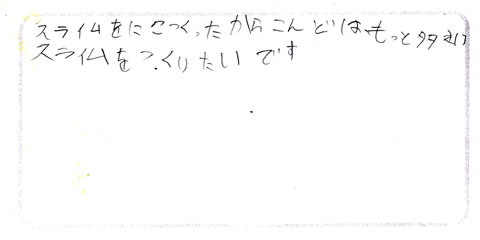 スライムをにこつくったからこんどはもっと多い
スライムをつくりたいです